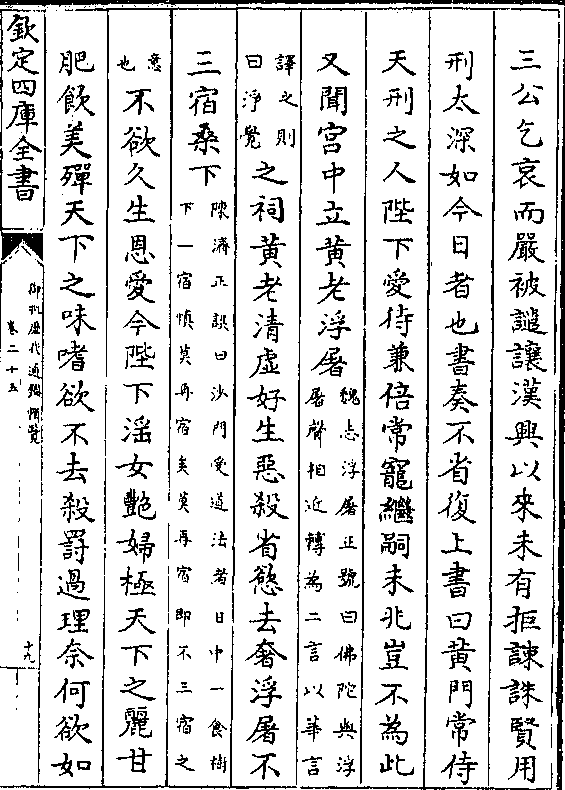 三公乞哀而嚴被譴讓漢興以來未有拒諫誅賢用
刑太深如今日者也書奏不省復上書曰黄門常侍
天刑之人陛下愛待兼倍常寵繼嗣未兆豈不為此
又聞宫中立黄老浮屠魏志浮屠正號曰佛陀與浮
屠聲相近轉為二言以華言
譯之則
曰淨覺之祠黄老清虚好生惡殺省慾去奢浮屠不
三宿桑下陳濟正誤曰沙門受道法者日中一食樹
下一宿慎莫再宿矣莫再宿即不三宿之
意
也不欲久生恩愛今陛下滛女艶婦極天下之麗甘
肥飲美殫天下之味嗜欲不去殺罸過理奈何欲如
欽定四庫全書
御批歴代通鑑輯覽
卷二十五
十九